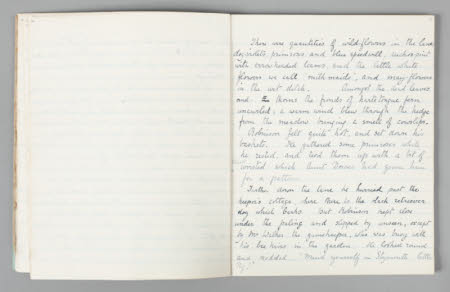 There were quantities of wild flowers in the lane
dog violets, primroses and blue speedwell, cuckoo-pint
with arrow headed leaves, and the little white
flowers we call "milk maids", and may flowers
in the wet ditch. Amongst the dead leaves
and the thorns the fronds of harts tongue fern
uncurled; a warm wind blew through the hedge
from the meadow bringing a smell of cowslips.
Robinson felt quite hot, and set down his
baskets. He gathered some primroses while
he rested, and tied them up with a bit of
worsted which Aunt Dorcas had given him
for a pattern.
Further down the lane he hurried past the
keeper's cottage, here there is the black retriever
dog which barks. But Robinson kept close
under the paling and slipped by unseen, except
by Mr the gamekeeper, who was busy with
his bee hives in the garden. He looked round
and nodded. "Mind yourself in Stymouth little
Pig!"